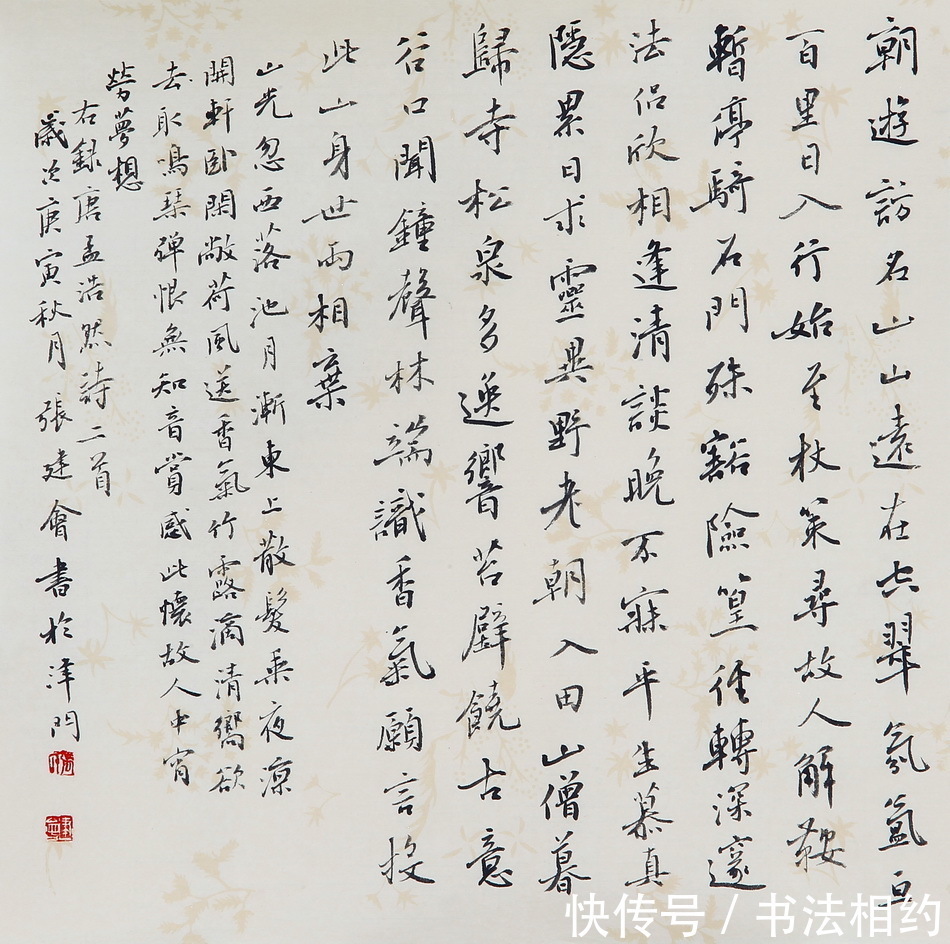 朝遊訪名山山遠在空翠氛氳亘
百里日入行始至杖策尋故人解鞍
暫停騎石門殊豁險篁徑轉深邃
法侶欣相逢清談曉不寐平生慕真
隱累日求靈異野老朝入田山僧暮
歸寺松泉多逸響苔壁饒古意
谷口聞鐘聲林端識香氣願言投
此山身世兩相棄
山光忽西落池月漸東上散髮乘夜涼
開軒卧閑敞荷風送香氣竹露滴清嚮欲
去取鳴琴弹恨無知音賞感此懷故人中宵
勞夢想
右録唐孟浩然詩二首
歲次庚寅秋月張建會書於津門
快传号/书法相约